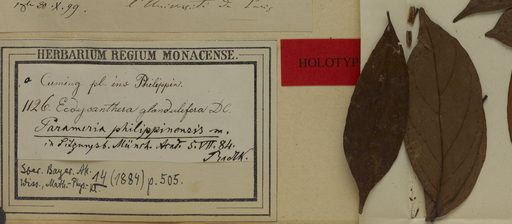 20.X.99. l'Université de Paris
HERBARIUM REGIUM MONACENSE.
HOLOTYP
a Cuming pl. ins. Philippin.
1126. Ecdysanthera glandulifera DC.
Parameria philippinensis m.
in Sitzungsb. Münch. Acad. 5.VII.84.
Radlk.
Sber. Bayer. Ak.
Wiss., Math.-Phys. Kl. 14 (1884) p. 505.